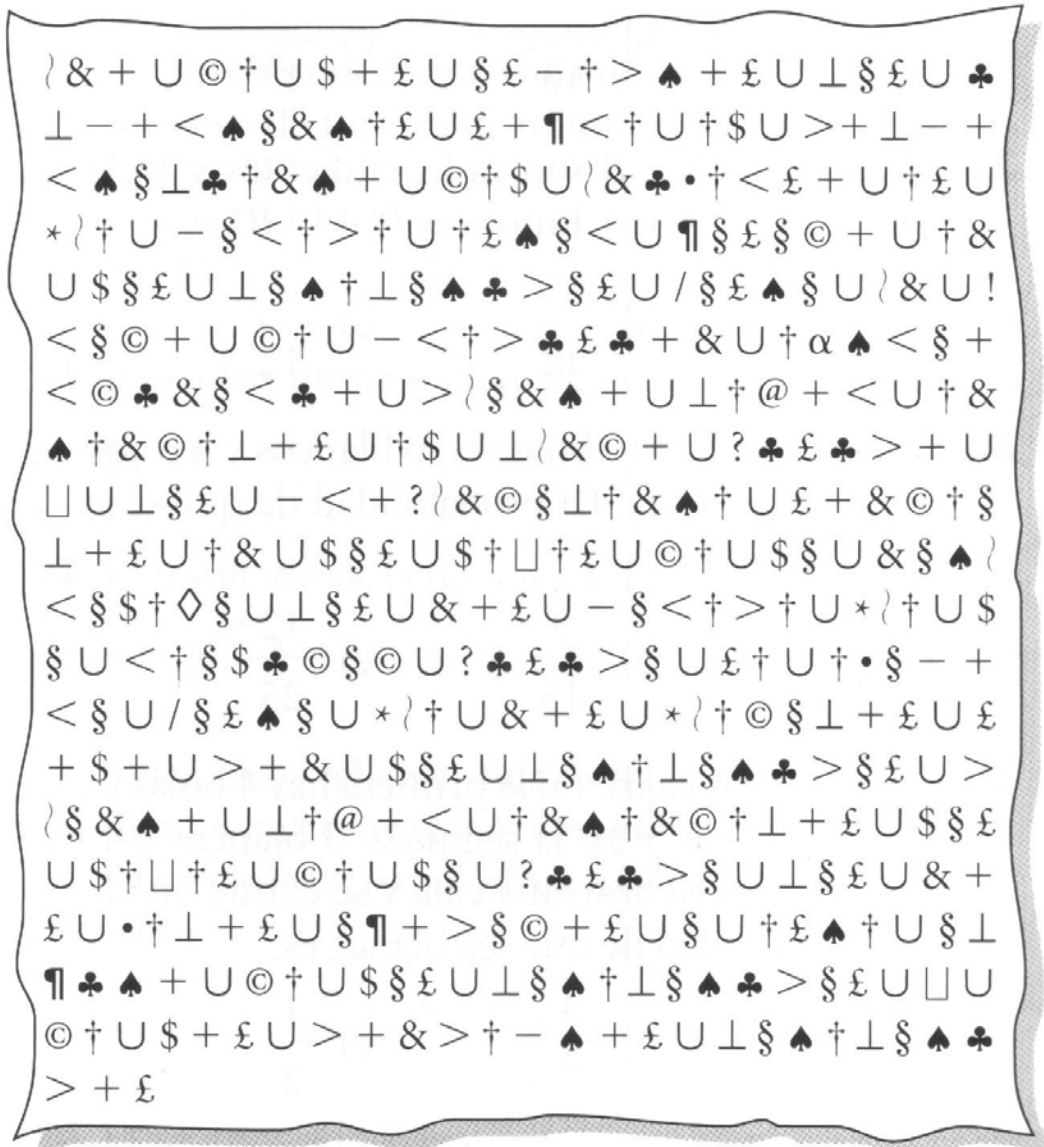 ≀ & + ∪ © † ∪ $ + £ ∪ § £ − † > ♠ + £ ∪ ⊥ § £ ∪ ♣
⊥ − + < ♠ § & ♠ † £ ∪ £ + ¶ < † ∪ † $ ∪ > + ⊥ − +
< ♠ § ⊥ ♣ † & ♠ + ∪ © † $ ∪ ≀ & ♣ • † < £ + ∪ † £ ∪
* ≀ † ∪ − § < † > † ∪ † £ ♠ § < ∪ ¶ § £ § © + ∪ † &
∪ $ § £ ∪ ⊥ § ♠ † ⊥ § ♠ ♣ > § £ ∪ / § £ ♠ § ∪ ≀ & ∪ !
< § © + ∪ © † ∪ − < † > ♣ £ ♣ + & ∪ † α ♠ < § +
< © ♣ & § < ♣ + ∪ > ≀ § & ♠ + ∪ ⊥ † @ + < ∪ † &
♠ † & © † ⊥ + £ ∪ † $ ∪ ⊥ ≀ & © + ∪ ? ♣ £ ♣ > + ∪
⊔ ∪ ⊥ § £ ∪ − < + ? ≀ & © § ⊥ † & ♠ † ∪ £ + & © † §
⊥ + £ ∪ † & ∪ $ § £ ∪ $ † ⊔ † £ ∪ © † ∪ $ § ∪ & § ♠ ≀
< § $ † ◊ § ∪ ⊥ § £ ∪ & + £ ∪ − § < † > † ∪ * ≀ † ∪ $
§ ∪ < † § $ ♣ © § © ∪ ? ♣ £ ♣ > § ∪ £ † ∪ † • § − +
< § ∪ / § £ ♠ § ∪ * ≀ † ∪ & + £ ∪ * ≀ † © § ⊥ + £ ∪ £
+ $ + ∪ > + & ∪ $ § £ ∪ ⊥ § ♠ † ⊥ § ♠ ♣ > § £ ∪ >
≀ § & ♠ + ∪ ⊥ † @ + < ∪ † & ♠ † & © † ⊥ + £ ∪ $ § £
∪ $ † ⊔ † £ ∪ © † ∪ $ § ∪ ? ♣ £ ♣ > § ∪ ⊥ § £ ∪ & +
£ ∪ • † ⊥ + £ ∪ § ¶ + > § © + £ ∪ § ∪ † £ ♠ † ∪ § ⊥
¶ ♣ ♠ + ∪ © † ∪ $ § £ ∪ ⊥ § ♠ † ⊥ § ♠ ♣ > § £ ∪ ⊔ ∪
© † ∪ $ + £ ∪ > + & > † − ♠ + £ ∪ ⊥ § ♠ † ⊥ § ♠ ♣
> + £